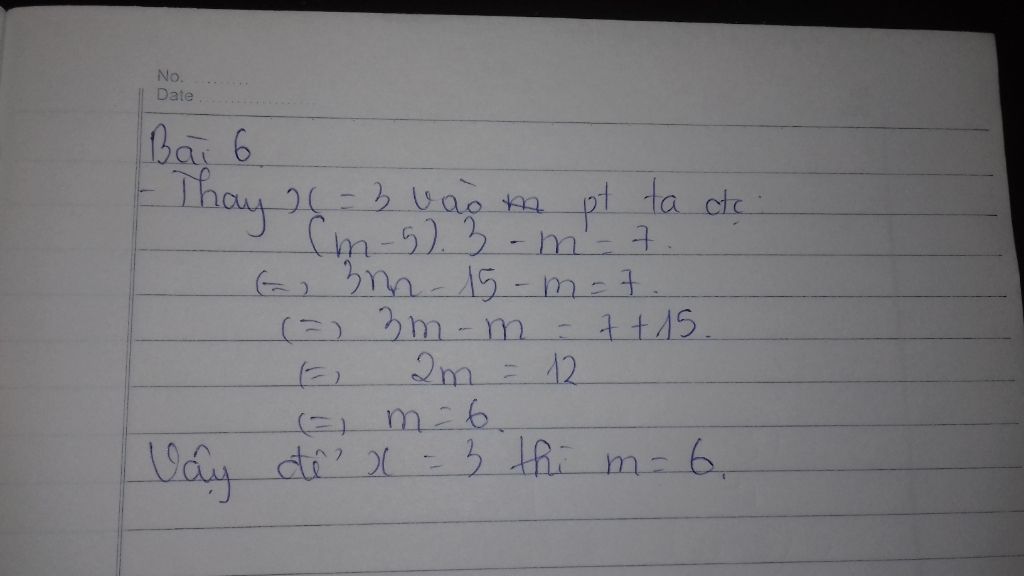 No. ..........
Date ......................
Bài 6
- Thay x = 3 vào m pt ta đc:
(m-5). 3 - m = 7.
(=) 3m - 15 - m = 7.
(=) 3m - m = 7 + 15.
(=) 2m = 12
(=) m = 6.
Vậy để x = 3 thì m = 6.